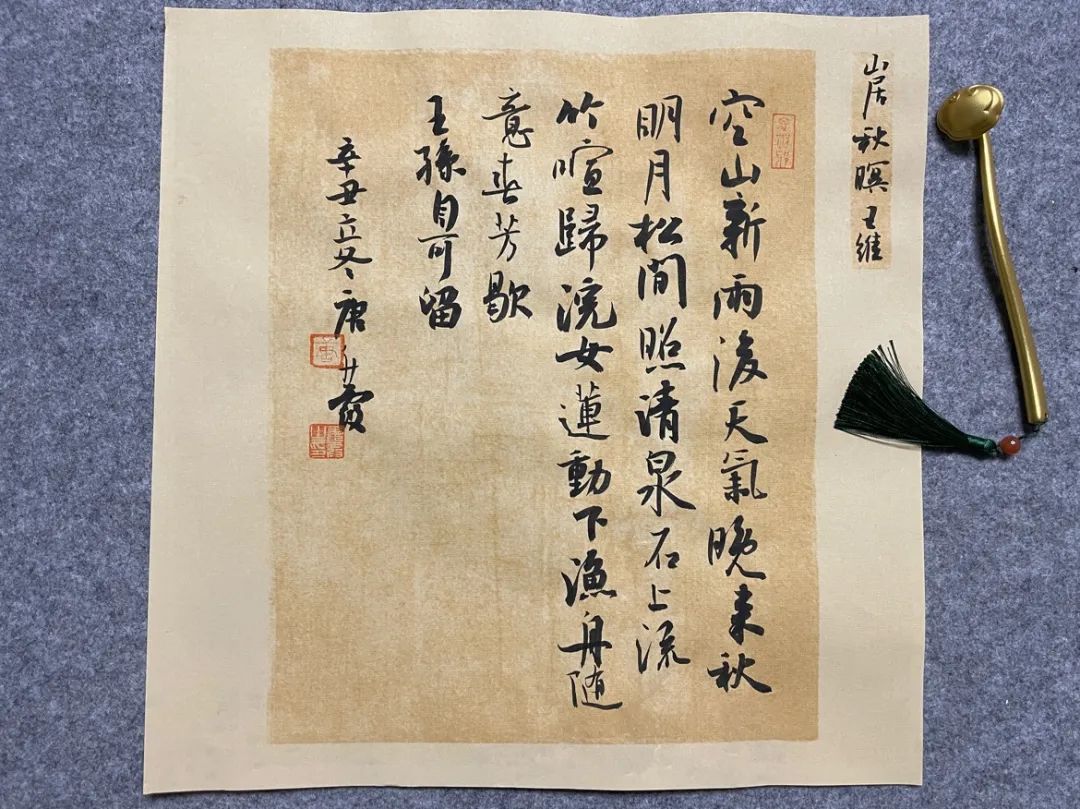 山居秋暝 王維
空山新雨後天氣晚来秋
明月松間照清泉石上流
竹喧歸浣女蓮動下漁舟随
意春芳歇
王孫自可留
辛丑立冬唐